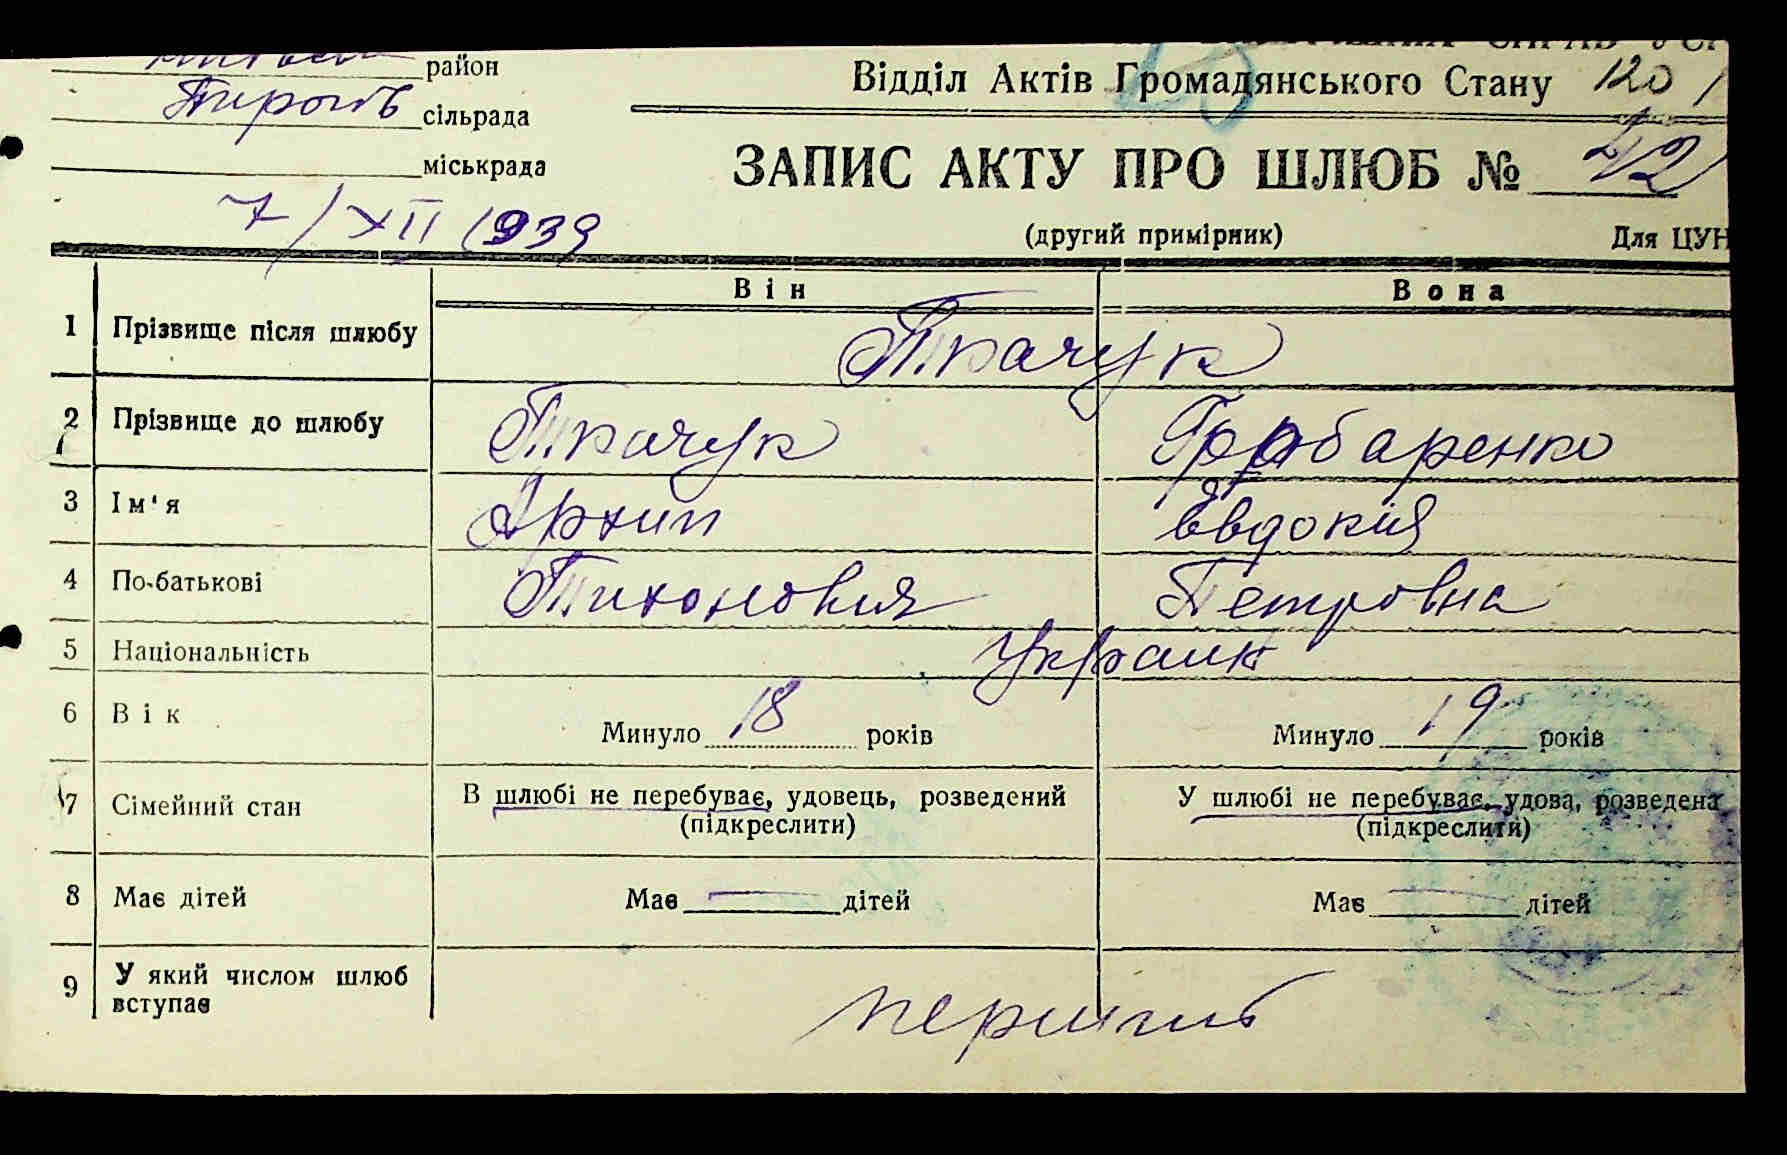 район
сільрада
міськрада
7/XII 1939
СПРАВ УСР
Відділ Актів Громадянського Стану 120
ЗАПИС АКТУ ПРО ШЛЮБ № 42
(другий примірник) Для ЦУН
Він Вона
1 Прізвище після шлюбу Ткачук
2 Прізвище до шлюбу Ткачук Грабаренко
3 Ім'я Архип Евдокия
4 По-батькові Тихонович Петровна
5 Національність Украин
6 Вік Минуло 18 років Минуло 19 років
7 Сімейний стан В шлюбі не перебуває, удовець, розведений У шлюбі не перебуває, удова, розведена
(підкреслити) (підкреслити)
8 Має дітей Має дітей Має дітей
9 У який числом шлюб
вступає